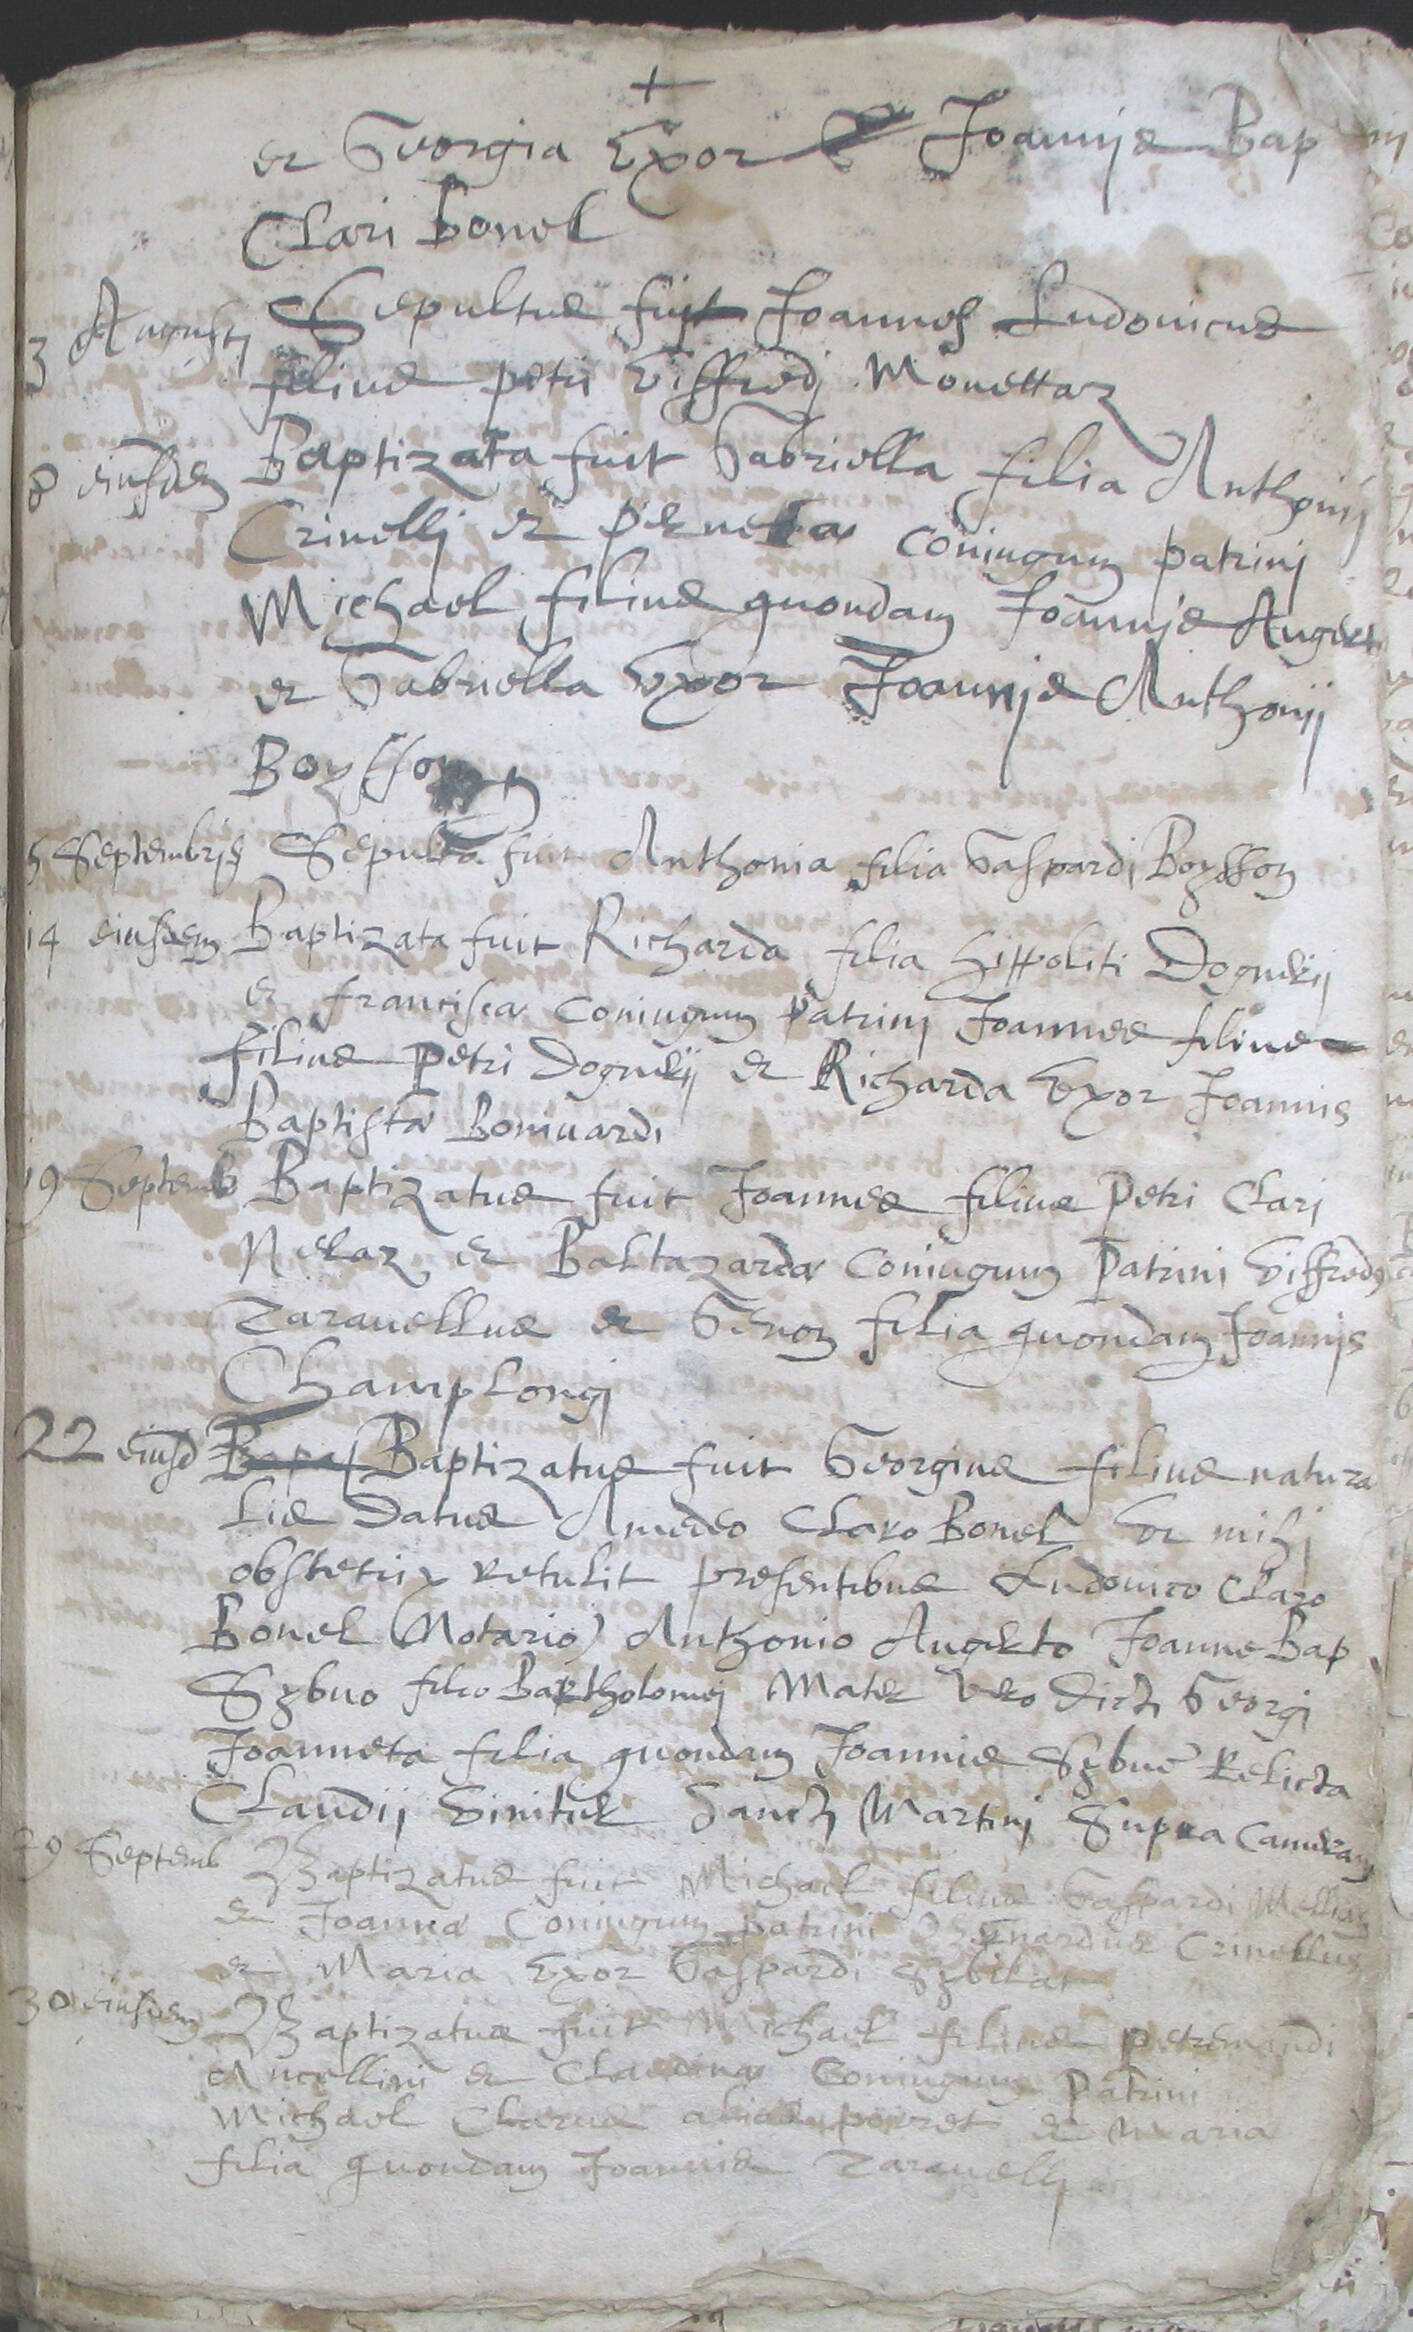 +
et Georgia Uxor Joannis Bap
Clari Bonel
3 Augusti Sepultus fuit Joannes Ludovicus
filius petri Viffredj Monettaz
8 eiusdem Baptizata fuit Gabriella filia Anthonij
Crinellj et perneta coniugum patrinj
Michael filius quondam Joannis Augerti
et Gabriella Uxor Joannis Anthonij
Boysson
5 Septembris Sepulta fuit Anthonia filia Gaspardi Boysson
14 eiusdem Baptizata fuit Richarda filia hippoliti Dognerij
et francisca coniugum Patrinj Joannes filius
filius Petri Dognerij et Richarda Uxor Joannis
Baptista Bonivardi
19 Septemb Baptizatus fuit Joannes filius Petri Clarj
Neraz et Baltazarda Coniugum Patrini Viffredus
Taravellus et Genon filia quondam Joannis
Champlongj
22 eiusd Bapt Baptizatus fuit Georgius filius natura
lis Datus Amedeo Claro Bonel ut mihj
obstetrix retulit presentibus Ludovico Claro
Bonel (Notario) Anthonio Augerto Joanne Bap
Sybuo filio Bartholomej Mater vero dicti Georgj
Joanneta filia quondam Joannis Sybue Relicta
Claudij Vinitier Sancti Martinj Supra Cameram
29 Septemb Baptizatus fuit Michael filius Gaspardi Mellian
et Joanna Coniugum patrini Bernardus Crinellus
et Maria Uxor Gaspardi Sybilat
30 eiusdem Baptizatus fuit Michael filius petremandi
Ancellini et Claudina Coniugum Patrini
Michael Clarus alias poret et Maria
filia quondam Joannis Taravellj